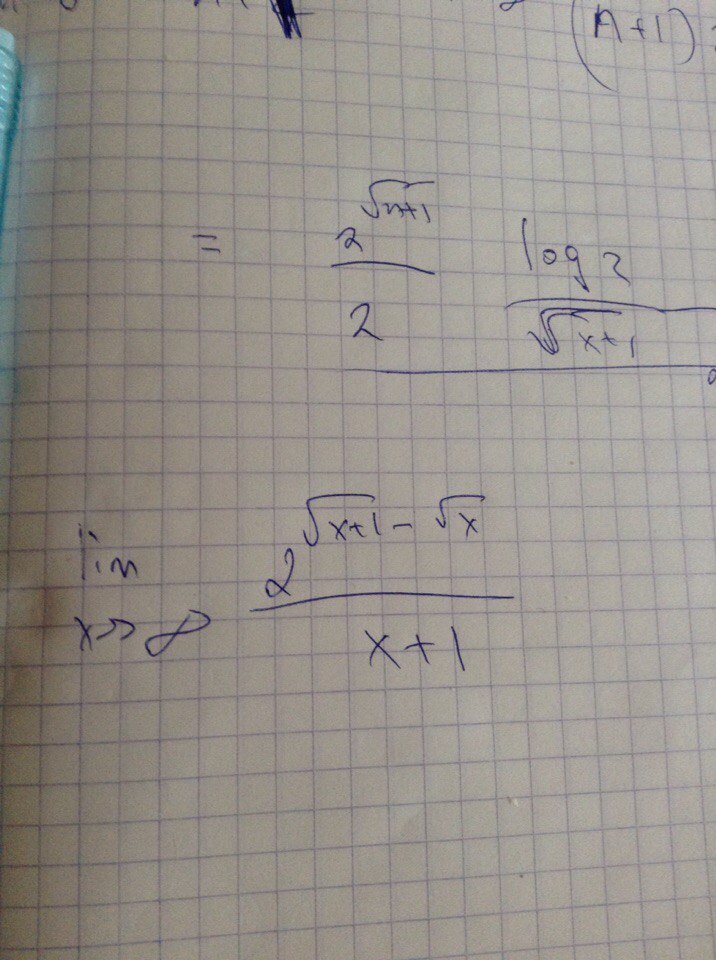 (n+1)
= 2^√(n+1) / 2 log 2 / √(x+1)
lim x→∞ 2^(√(x+1) - √x) / (x+1)